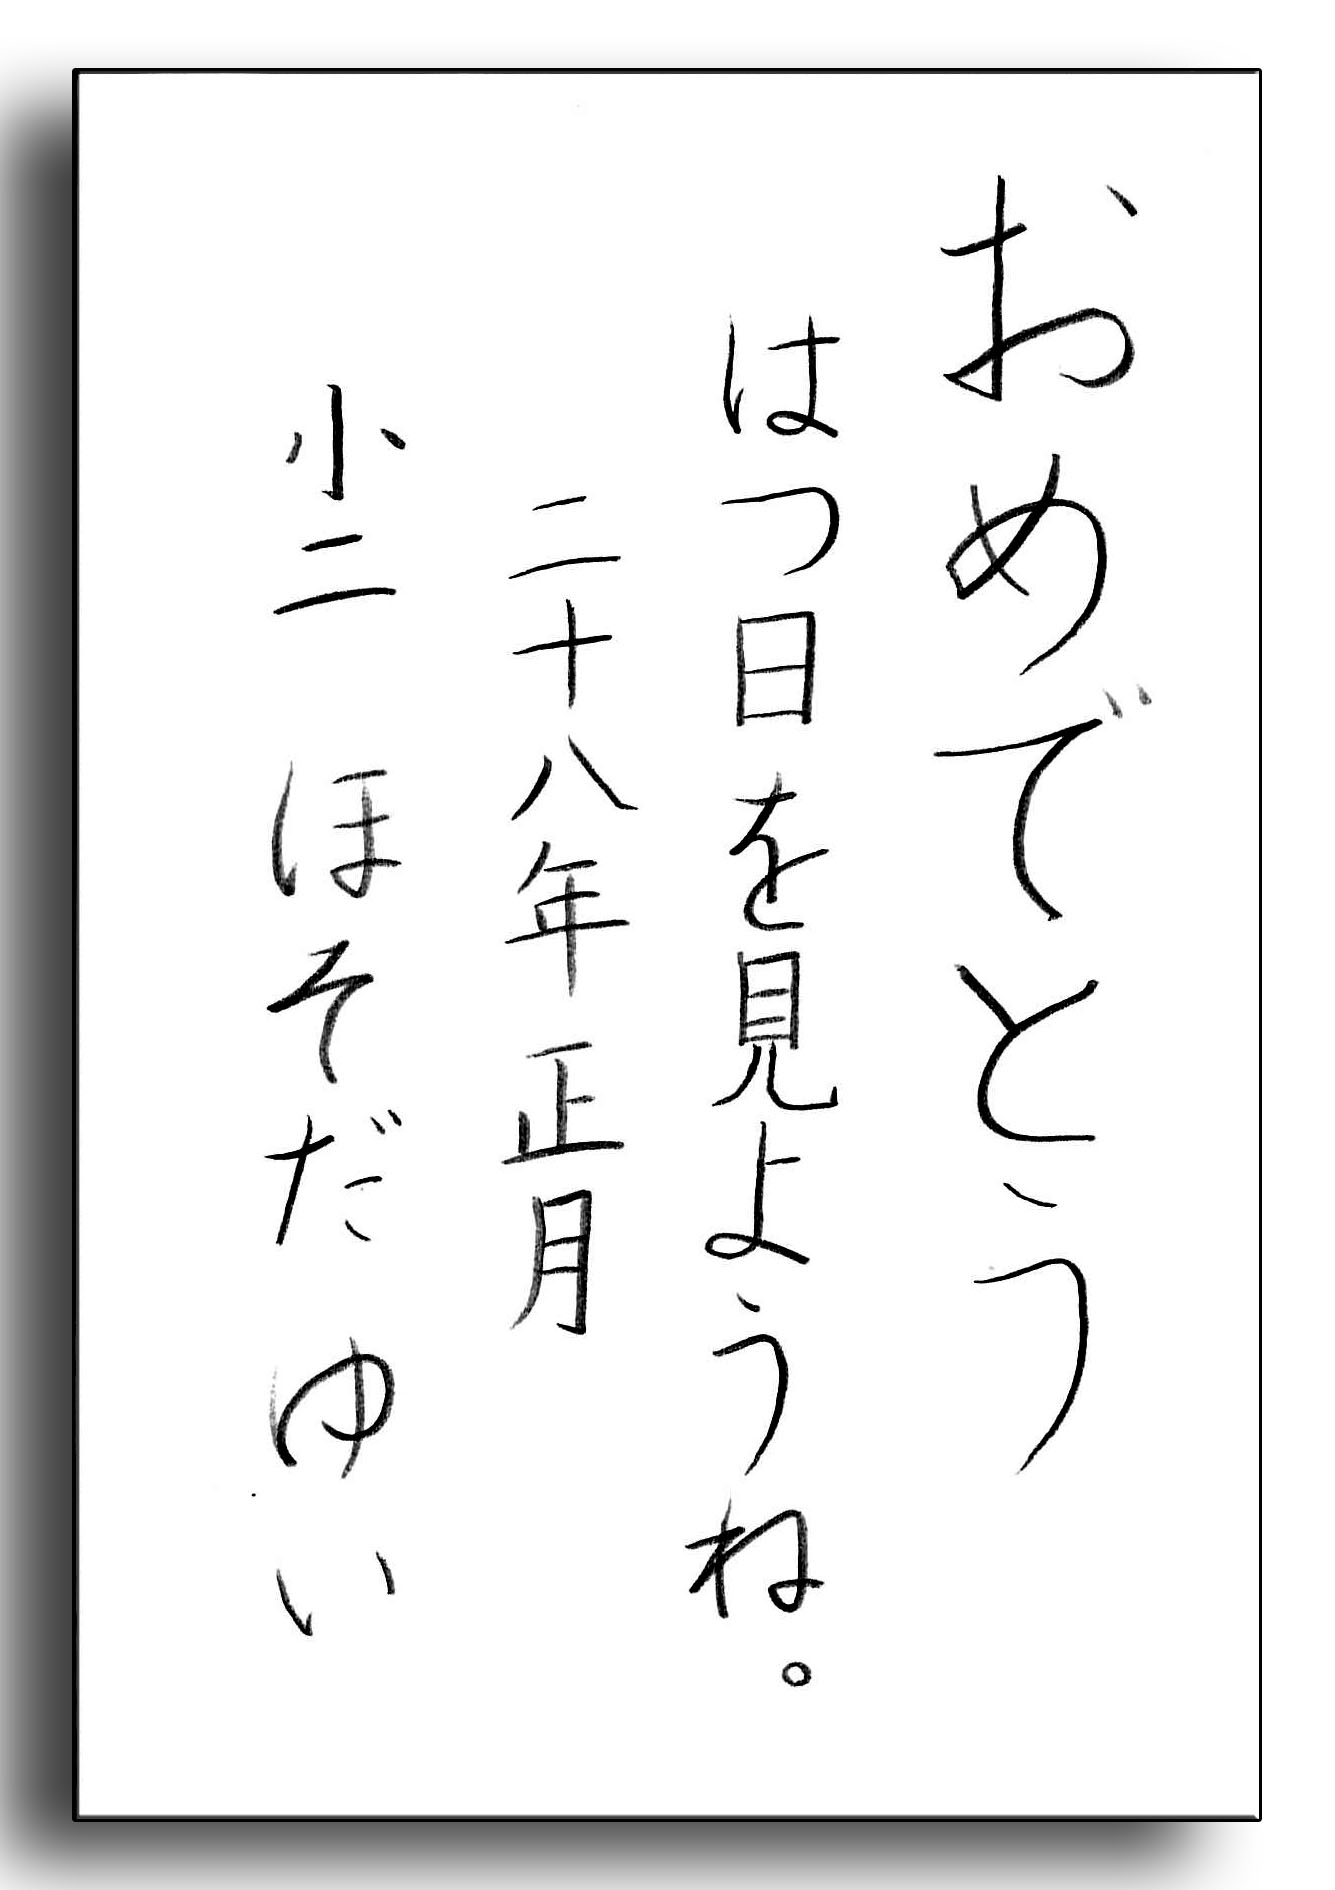 おめでとう
はつ日を見ようね。
二十八年正月
小二 ほそだ ゆい